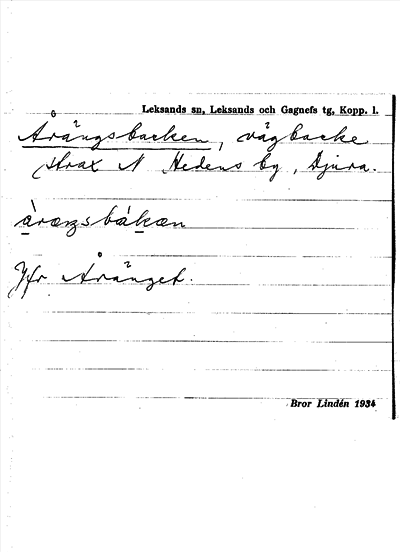 Leksands sn, Leksands och Gagnefs tg, Kopp. l.
Årängsbacken, vägbacke
strax N Hedens by, Djura.
àræŋsbákæn
Jfr Åränget.
Bror Lindén 1934